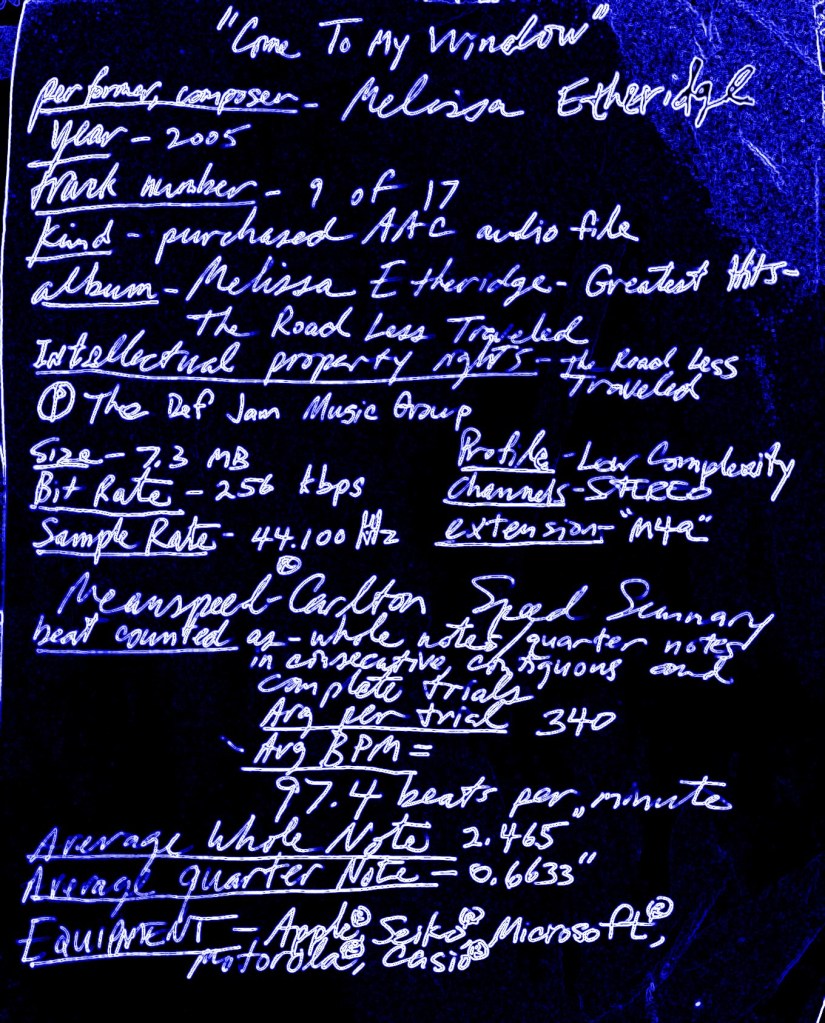 "Come To My Window"
performer, composer - Melissa Etheridge
Year - 2005
track number - 9 of 17
Kind - purchased AAC audio file
album - Melissa Etheridge - Greatest Hits -
The Road Less Traveled
Intellectual property rights - the Road Less
Traveled
Ⓟ The Def Jam Music Group
Size - 7.3 MB
Profile - Low Complexity
Bit Rate - 256 kbps
Channels - STEREO
Sample Rate - 44.100 Hz
extension - "m4a"
Meanspeed© - Carlton Speed Summary
beat counted as - whole notes/quarter notes
in consecutive, contiguous and
complete trials
Avg per trial 340
Avg BPM =
97.4 beats per minute
Average Whole Note 2.465"
Average quarter Note - 0.6633"
EQUIPMENT - Apple®, Seiko®, Microsoft®,
Motorola®, Casio®